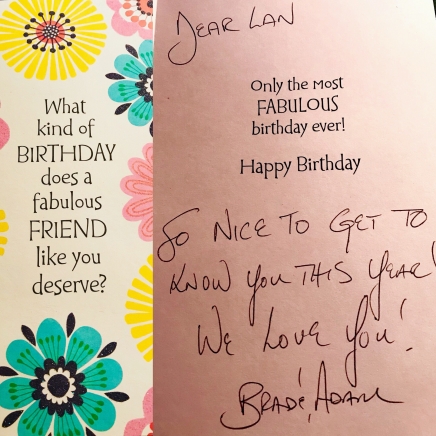 What
kind of
BIRTHDAY
does a
fabulous
FRIEND
like you
deserve?
DEAR LAN
Only the MOST
FABULOUS
birthday ever!
Happy Birthday
SO NICE TO GET TO
KNOW YOU THIS YEAR!
WE LOVE YOU!
BRAD & ADAM